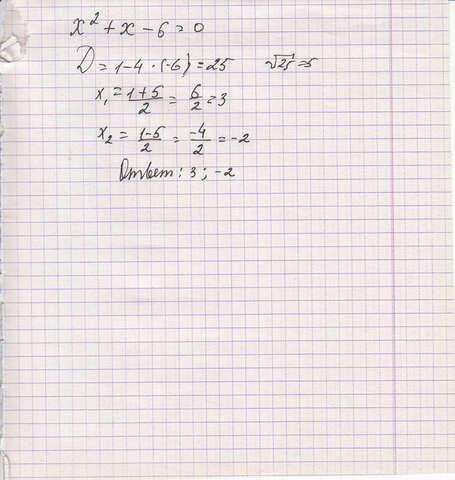 x² + x - 6 = 0
D = 1 - 4 · (-6) = 25 √25 = 5
x₁ = (1+5)/2 = 6/2 = 3
x₂ = (1-5)/2 = -4/2 = -2
Ответ: 3; -2